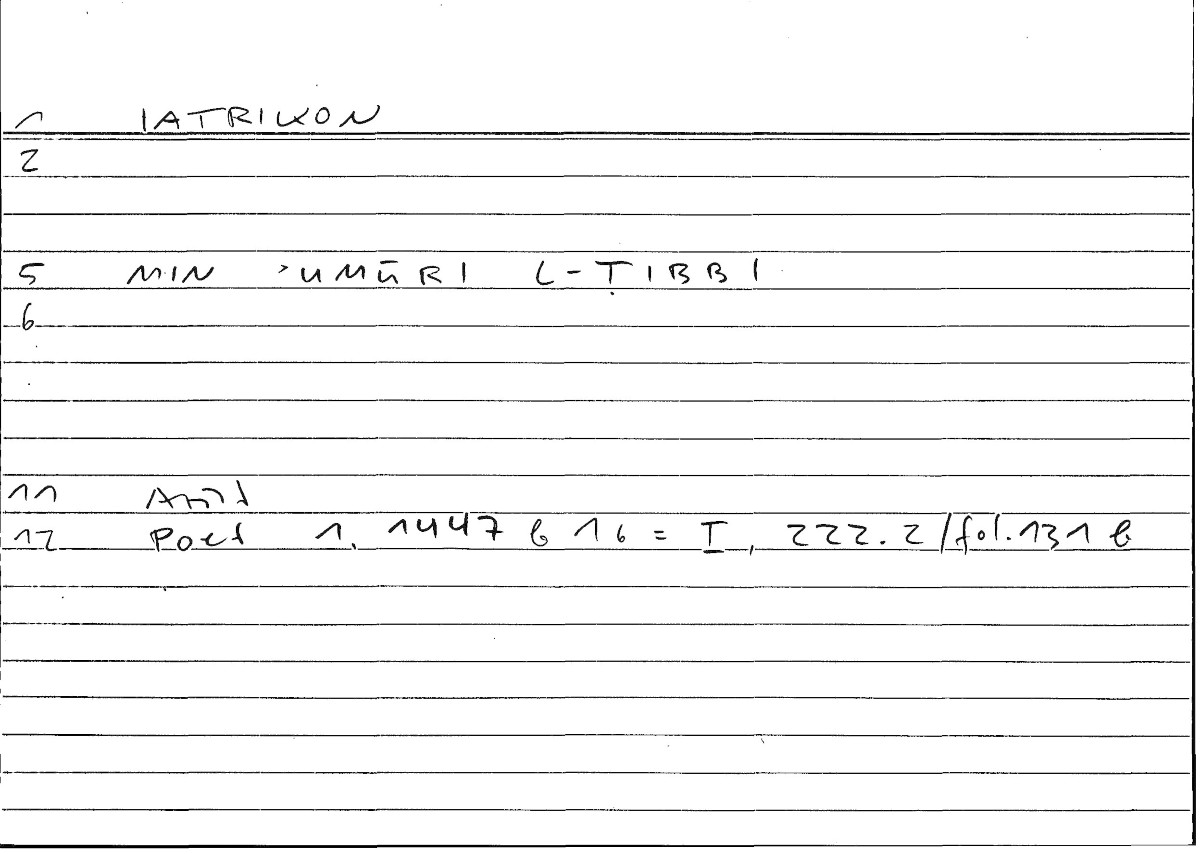 1 IATRIKON
2
5 MIN ʾUMŪRI L-ṬIBBI
6
11 Arist
12 Poet 1, 1447 b 16 = I, 222.2/fol.131 b